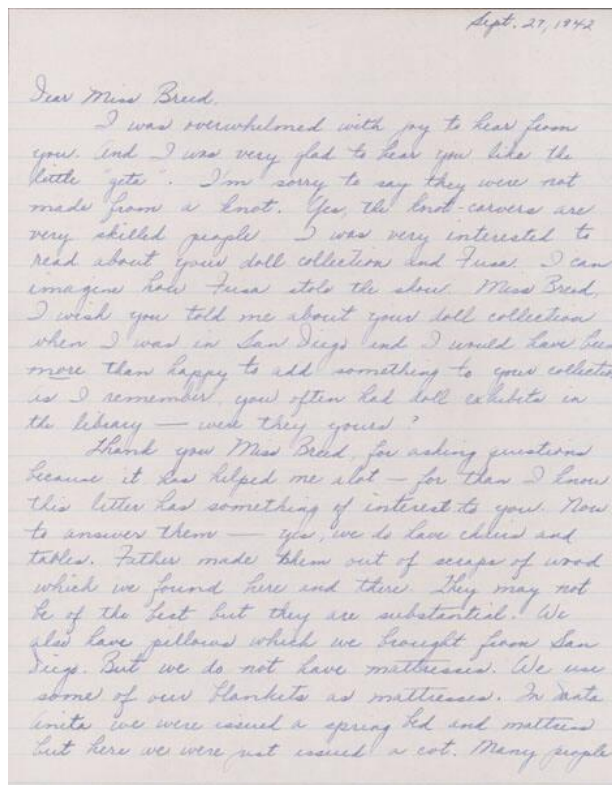 Sept. 27, 1942
Dear Miss Breed,
I was overwhelmed with joy to hear from
you. And I was very glad to hear you like the
little "geta". I'm sorry to say they were not
made from a knot. Yes, the knot-carvers are
very skilled people. I was very interested to
read about your doll collection and Fusa. I can
imagine how Fusa stole the show. Miss Breed,
I wish you told me about your doll collection
when I was in San Diego and I would have been
more than happy to add something to your collection
as I remember, you often had doll exhibits in
the library — were they yours?
Thank you Miss Breed, for asking questions
because it has helped me alot — for than I know
this letter has something of interest to you. Now
to answer them — yes, we do have chairs and
tables. Father made them out of scraps of wood
which we found here and there. They may not
be of the best but they are substantial. We
also have pillows which we brought from San
Diego. But we do not have mattresses. We use
some of our blankets as mattresses. In Santa
Anita we were issued a spring bed and mattress
but here we were just issued a cot. Many people